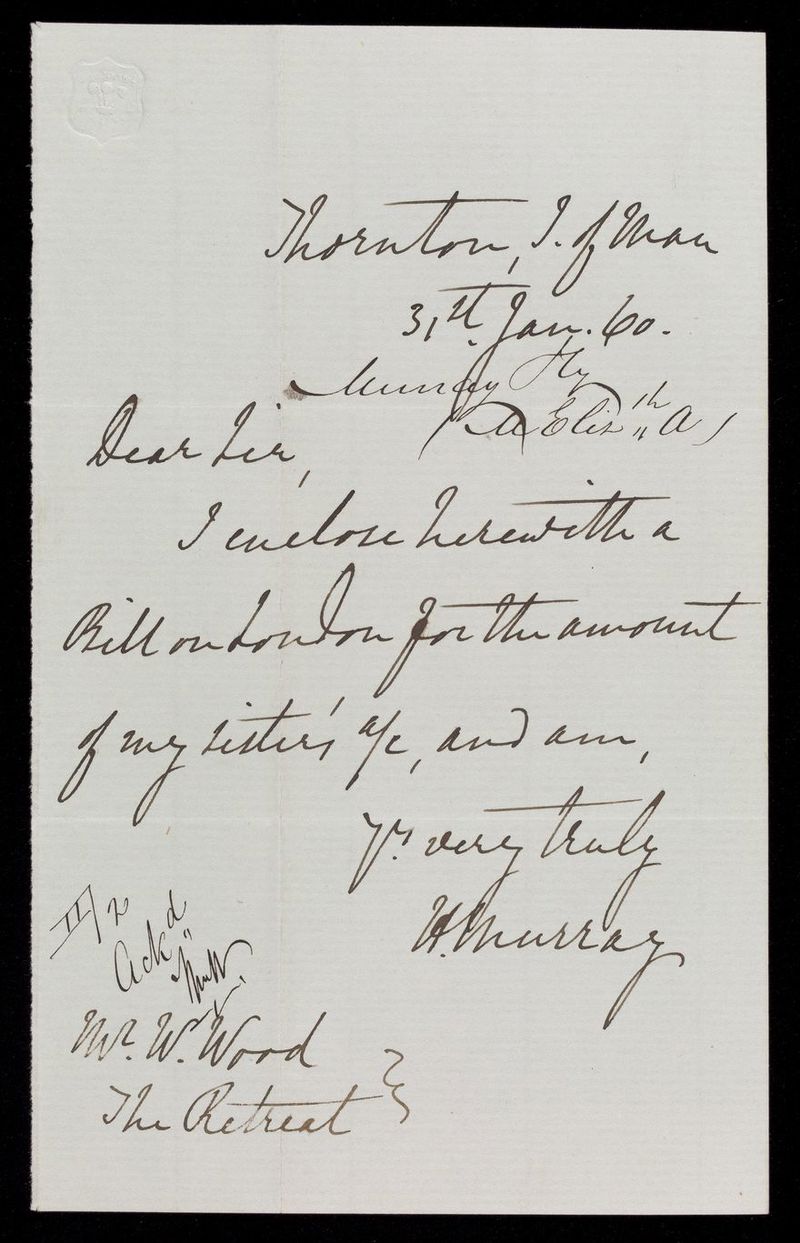 Thornton, I. of Man
31st Jan. 60.
Murray Hy
(M Elizth A)
Dear Sir,
I enclose herewith a
Bill on London for the amount
of my sister's a/c, and am,
Yrs very truly
H. Murray
II/2
Ackd
Mr. Wm. Wood
The Retreat